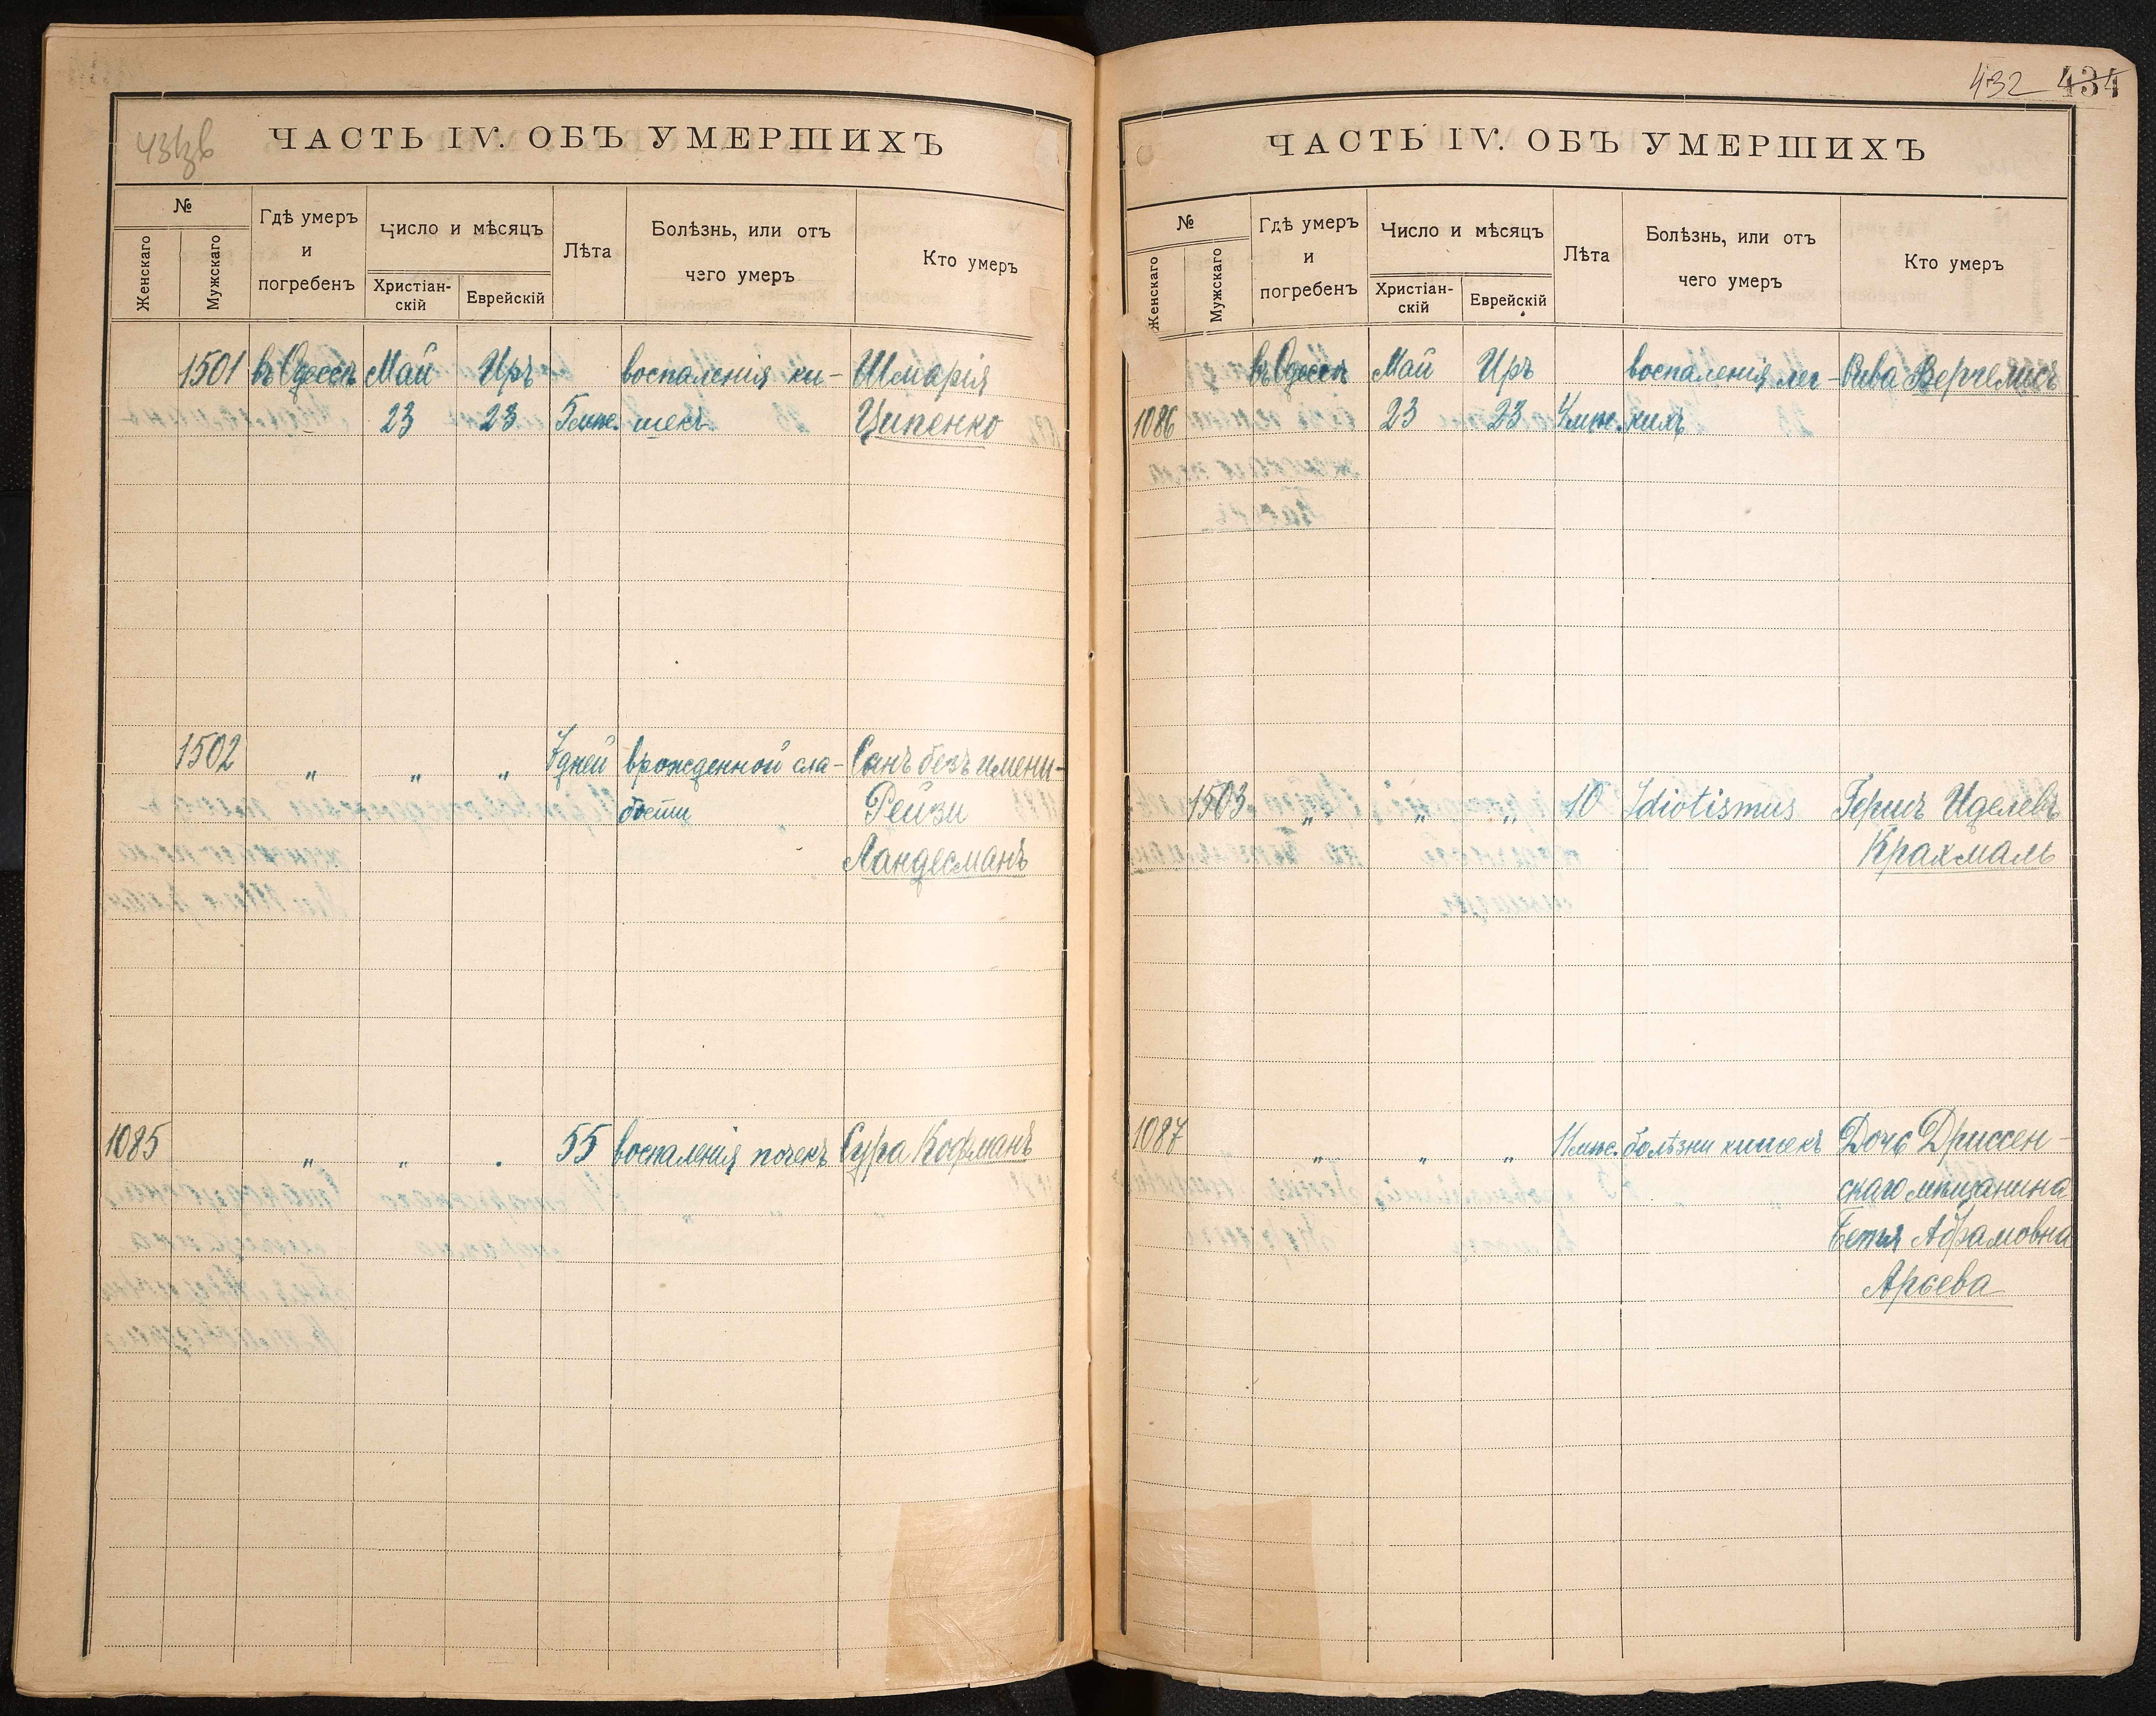 431зв
ЧАСТЬ IV. ОБЪ УМЕРШИХЪ
№
Женскаго
Мужскаго
Гдѣ умеръ
и
погребенъ
Число и мѣсяцъ
Христіан-
скій
Еврейскій
Лѣта
Болѣзнь, или отъ
чего умеръ
Кто умеръ
1501 въ Одессѣ Май Иръ воспаленія ки- Шмарія
23 23 5 мѣс. шекъ Ципенко
1502 „ „ „ 7 дней врожденной сла- Сынъ безъ имени
бости Рейзи
Ландесманъ
1085 „ „ „ 55 воспаленія почекъ Сура Кофманъ
432 434
ЧАСТЬ IV. ОБЪ УМЕРШИХЪ
№
Женскаго
Мужскаго
Гдѣ умеръ
и
погребенъ
Число и мѣсяцъ
Христіан-
скій
Еврейскій
Лѣта
Болѣзнь, или отъ
чего умеръ
Кто умеръ
въ Одессѣ Май Иръ воспаленія лег- Рива
1086 23 23 4 мѣс. кихъ
1503 „ „ „ 10 Idiotismus Гершъ Иделевъ
Крахмаль
1087 „ „ „ 11 мѣс. болѣзни кишекъ Дочь Дриссен-
скаго мѣщанина
Бетья Абрамовна
Арьева